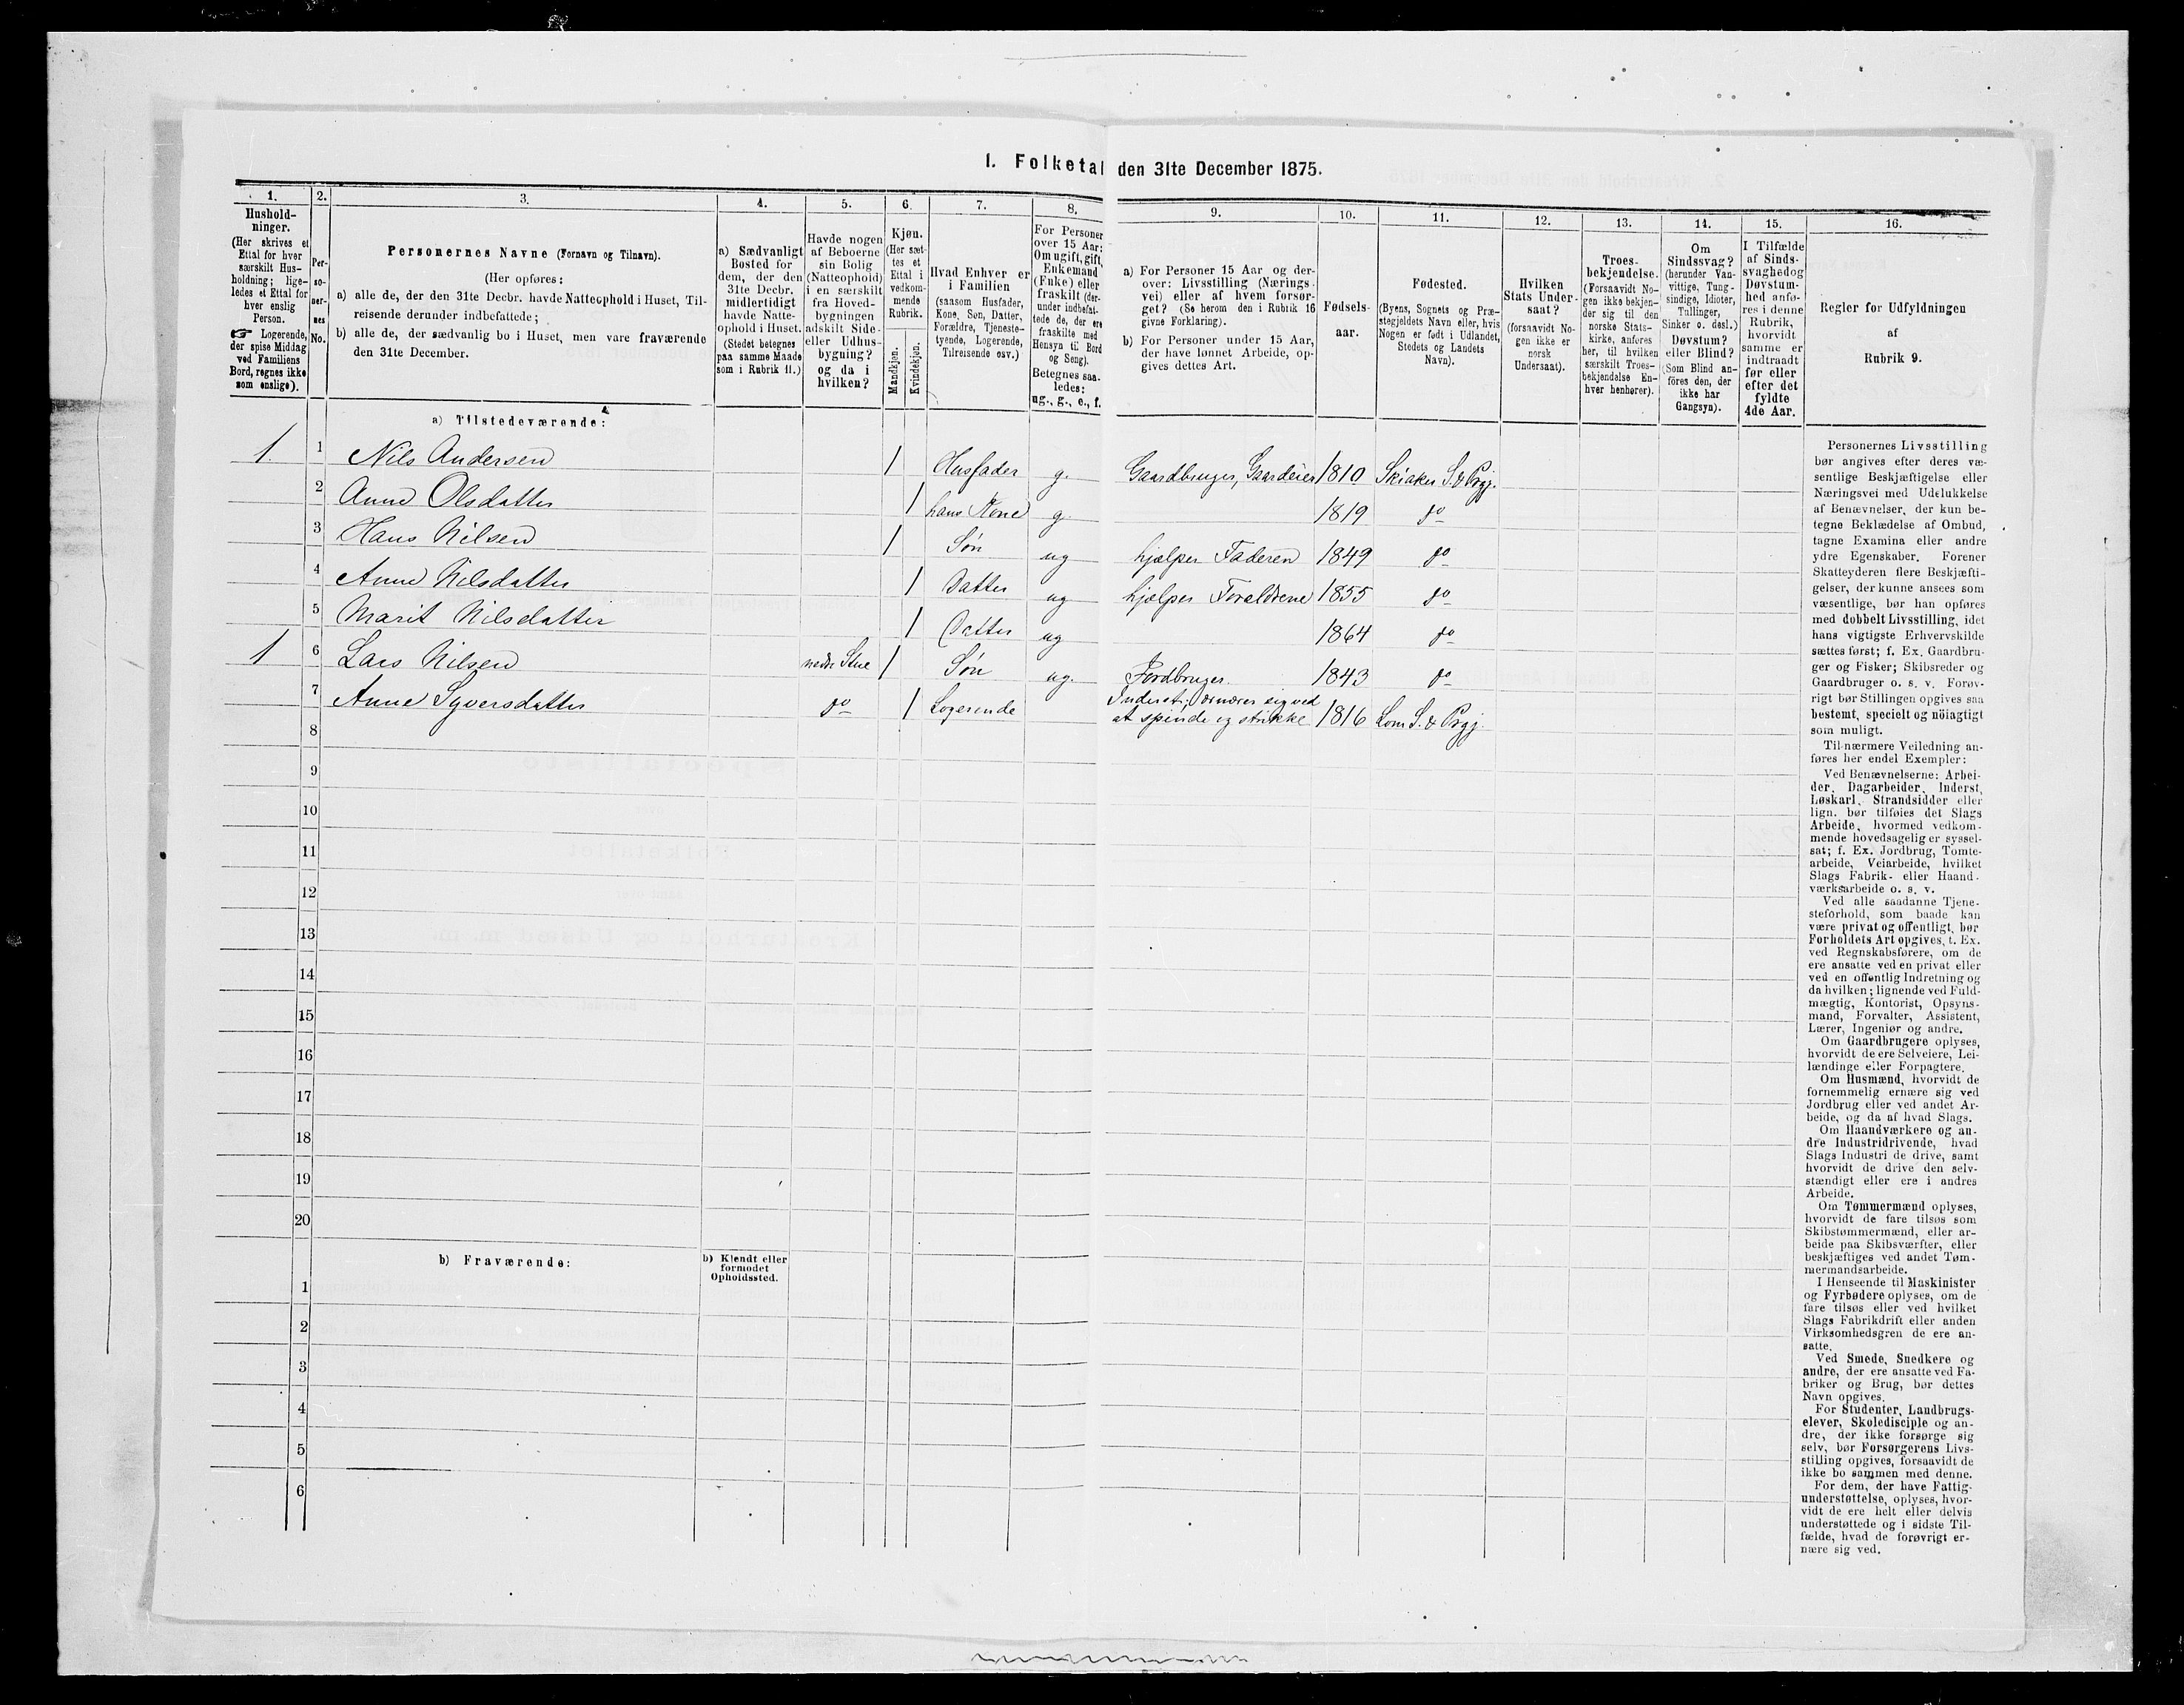 1. Folketal den 31te December 1875.
1.
Hushold-
ninger.
(Her skrives et
Ettal for hver
særskilt Hus-
holdning; lige-
ledes et Ettal for
hver enslig
Person.
☞ Logerende,
der spise Middag
ved Familiens
Bord, regnes ikke
som enslige).
2.
Per-
so-
ner-
nes
No.
3.
Personernes Navne (Fornavn og Tilnavn).
(Her opføres:
a) alle de, der den 31te Decbr. havde Natteophold i Huset, Til-
reisende derunder indbefattede;
b) alle de, der sædvanlig bo i Huset, men vare fraværende
den 31te December.
4.
a) Sædvanligt
Bosted for
dem, der den
31te Decbr.
midlertidigt
havde Natte-
ophold i Huset.
(Stedet betegnes
paa samme Maade
som i Rubrik 11.)
5.
Havde nogen
af Beboerne
sin Bolig
(Natteophold)
i en særskilt
fra Hoved-
bygningen
adskilt Side-
eller Udhus-
bygning?
og da i
hvilken?
6.
Kjøn.
(Her sæt-
tes et
Ettal i
vedkom-
mende
Rubrik.
Mandkjøn.
Kvindekjøn.
7.
Hvad Enhver er
i Familien
(saasom Husfader,
Kone, Søn, Datter,
Forældre, Tjeneste-
tyende, Logerende,
Tilreisende osv.)
8.
For Personer
over 15 Aar:
Om ugift, gift,
Enkemand
(Enke) eller
fraskilt (der-
under indbefat-
tede de, der ere
fraskilte med
Hensyn til Bord
og Seng).
Betegnes saa-
ledes:
ug., g., e., f.
9.
a) For Personer 15 Aar og der-
over: Livsstilling (Nærings-
vei) eller af hvem forsør-
get? (Se herom den i Rubrik 16
givne Forklaring).
b) For Personer under 15 Aar,
der have lønnet Arbeide, op-
gives dettes Art.
10.
Fødsels-
aar.
11.
Fødested.
(Byens, Sognets og Præ-
stegjeldets Navn eller, hvis
Nogen er født i Udlandet,
Stedets og Landets
Navn).
12.
Hvilken
Stats Under-
saat?
(forsaavidt No-
gen ikke er
norsk
Undersaat).
13.
Troes-
bekjendelse.
(Forsaavidt No-
gen ikke bekjen-
der sig til den
norske Stats-
kirke, anføres
her, til hvilken
særskilt Troes-
bekjendelse En-
hver henhører).
14.
Om
Sindssvag?
(herunder Van-
vittige, Tung-
sindige, Idioter,
Tullinger,
Sinker o. desl.)
Døvstum?
eller Blind?
(Som Blind an-
føres den, der
ikke har
Gangsyn).
15.
I Tilfælde
af Sinds-
svaghed og
Døvstum-
hed anfø-
res i denne
Rubrik,
hvorvidt
samme er
indtraadt
før eller
efter det
fyldte
4de Aar.
16.
Regler for Udfyldningen
af
Rubrik 9.
a) Tilstedeværende:
1 1 Nils Andersen 1 Husfader g. Gaardbruger, Gaardeier 1810 Skiaker S. & Prgj.
2 Anne Olsdatter 1 hans Kone g. 1819 do
3 Hans Nilsen 1 Søn ug hjælper Faderen 1849 do
4 Anne Nilsdatter 1 Datter ug hjælper Forældrene 1855 do
5 Marit Nilsdatter 1 Datter ug 1864 do
1 6 Lars Nilsen nedr. Stue 1 Søn ug. Jordbruger. 1843 do
7 Anne Syversdatter do 1 Logerende Inderst; ernærer sig ved
at spinde og strikke 1816 Lom S. & Prgj.
8
9
10
11
12
13
14
15
16
17
18
19
20
b) Fraværende:
b) Kjendt eller
formodet
Opholdssted.
1
2
3
4
5
6
Personernes Livsstilling
bør angives efter deres væ-
sentlige Beskjæftigelse eller
Næringsvei med Udelukkelse
af Benævnelser, der kun be-
tegne Beklædelse af Ombud,
tagne Examina eller andre
ydre Egenskaber. Forener
Skatteyderen flere Beskjæfti-
gelser, der kunne ansees som
væsentlige, bør han opføres
med dobbelt Livsstilling, idet
hans vigtigste Erhvervskilde
sættes først; f. Ex. Gaardbru-
ger og Fisker; Skibsreder og
Gaardbruger o. s. v. Forøv-
rigt bør Stillingen opgives saa
bestemt, specielt og nöiagtigt
som muligt.
Til nærmere Veiledning an-
føres her endel Exempler:
Ved Benævnelserne: Arbei-
der, Dagarbeider, Inderst,
Løskarl, Strandsidder eller
lign. bør tilføies det Slags
Arbeide, hvormed vedkom-
mende hovedsagelig er syssel-
sat; f. Ex. Jordbrug, Tomte-
arbeide, Veiarbeide, hvilket
Slags Fabrik- eller Haand-
værksarbeide o. s. v.
Ved alle saadanne Tjene-
steforhold, som baade kan
være privat og offentligt, bør
Forholdets Art opgives, t. Ex.
ved Regnskabsførere, om de
ere ansatte ved en privat eller
ved en offentlig Indretning og
da hvilken; lignende ved Fuld-
mægtig, Kontorist, Opsyns-
mand, Forvalter, Assistent,
Lærer, Ingeniør og andre.
Om Gaardbrugere oplyses,
hvorvidt de ere Selveiere, Lei-
lændinge eller Forpagtere.
Om Husmænd, hvorvidt de
fornemmelig ernære sig ved
Jordbrug eller ved andet Ar-
beide, og da af hvad Slags.
Om Haandværkere og an-
dre Industridrivende, hvad
Slags Industri de drive, samt
hvorvidt de drive den selv-
stændigt eller ere i andres
Arbeide.
Om Tømmermænd oplyses,
hvorvidt de fare tilsøs som
Skibstømmermænd, eller ar-
beide paa Skibsværfter, eller
beskjæftiges ved andet Tøm-
mermandsarbeide.
I Henseende til Maskinister
og Fyrbødere oplyses, om de
fare tilsøs eller ved hvilket
Slags Fabrikdrift eller anden
Virksomhedsgren de ere an-
satte.
Ved Smede, Snedkere og
andre, der ere ansatte ved Fa-
briker og Brug, bør dettes
Navn opgives.
For Studenter, Landbrugs-
elever, Skoledisciple og an-
dre, der ikke forsørge sig
selv, bør Forsørgerens Livs-
stilling opgives, forsaavidt de
ikke bo sammen med denne.
For dem, der have Fattig-
understøttelse, oplyses, hvor-
vidt de ere helt eller delvis
understøttede og i sidste Til-
fælde, hvad de forøvrigt er-
nære sig ved.